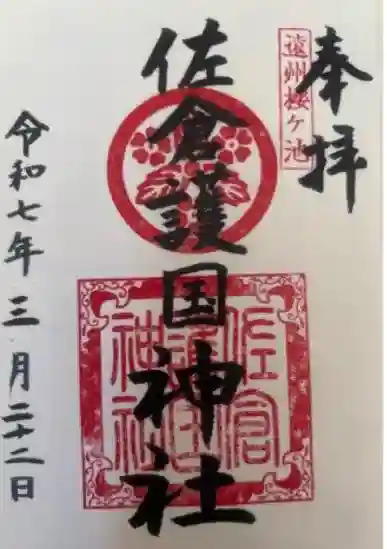 奉拝
遠州桜ヶ池
佐倉護国神社
佐倉
護国
神社
令和七年三月二十二日